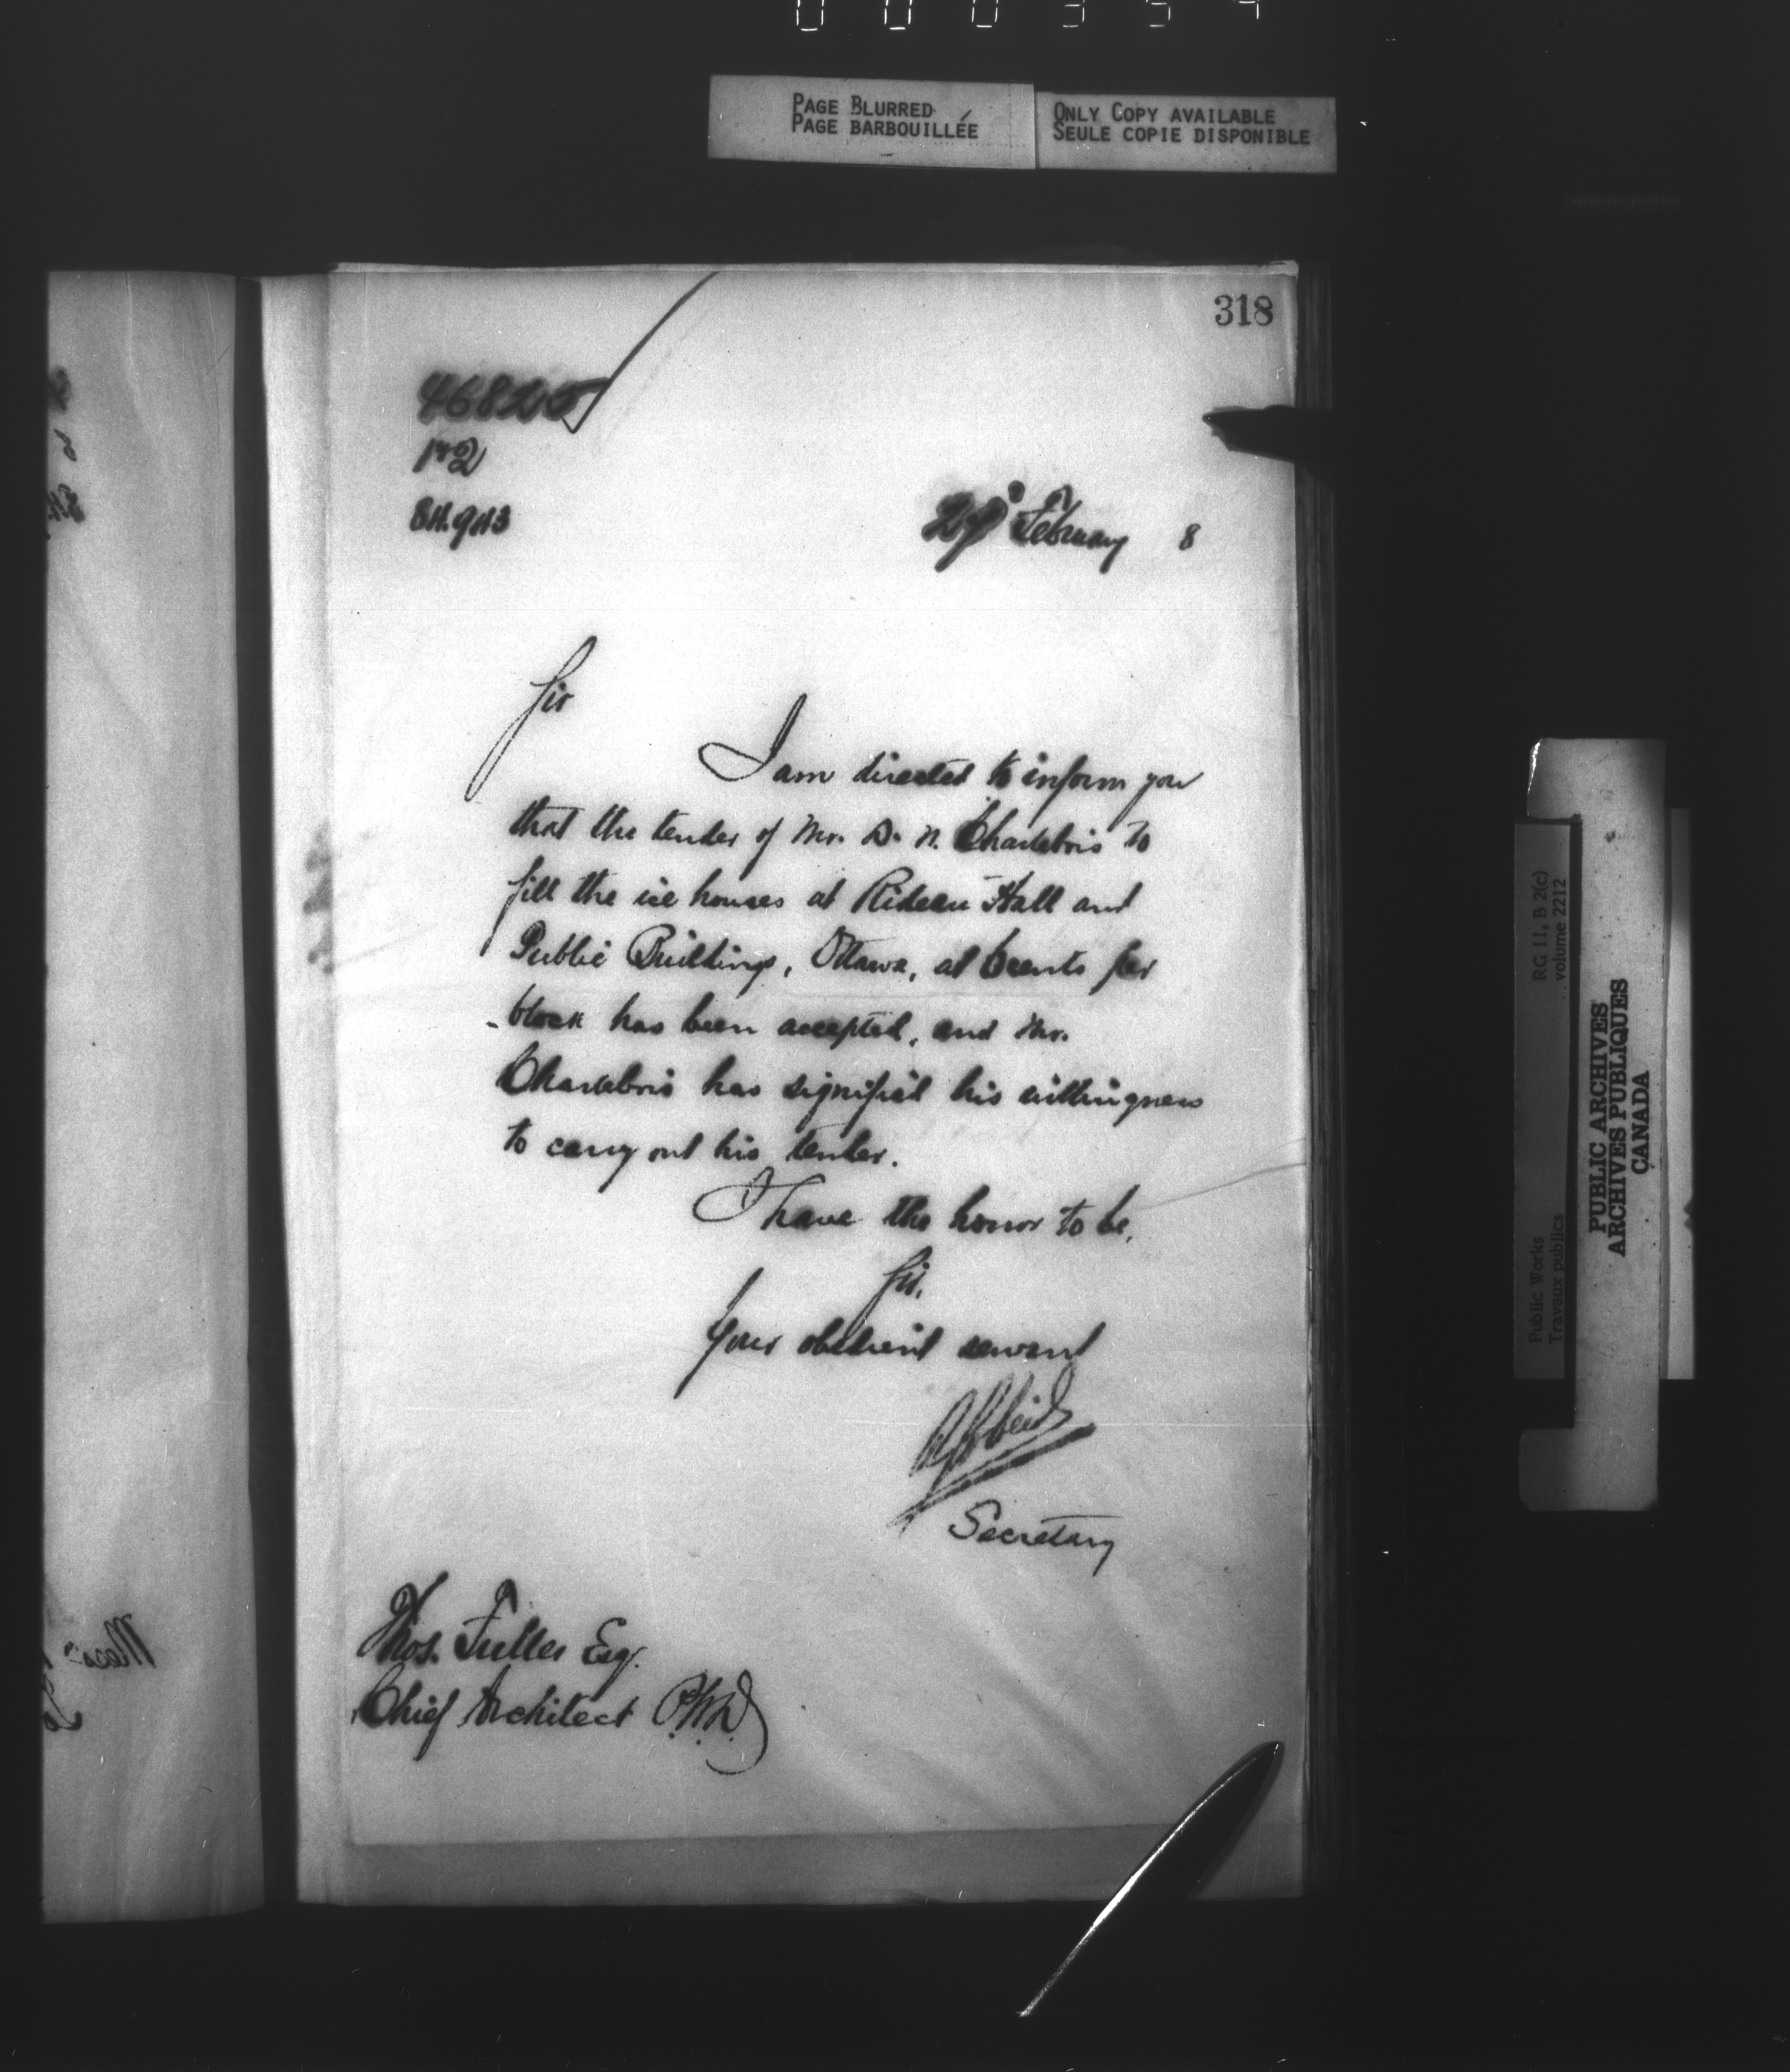 PAGE BLURRED
PAGE BARBOUILLÉE
ONLY COPY AVAILABLE
SEULE COPIE DISPONIBLE
318
46825
84.943
February 8
Sir
I am directed to inform you
that the tender of Mr. D. N. Charlebois to
fill the ice houses at Rideau Hall and
Public Buildings, Ottawa, at 6 cents per
block has been accepted, and Mr.
Charlebois has signified his willingness
to carry out his tender.
I have the honor to be,
Sir,
Your obedient servant
Secretary
Thos. Fuller Esq.
Chief Architect P.W.D.
RG 11, B 2(c)
volume 2212
Public Works
Travaux publics
PUBLIC ARCHIVES
ARCHIVES PUBLIQUES
CANADA